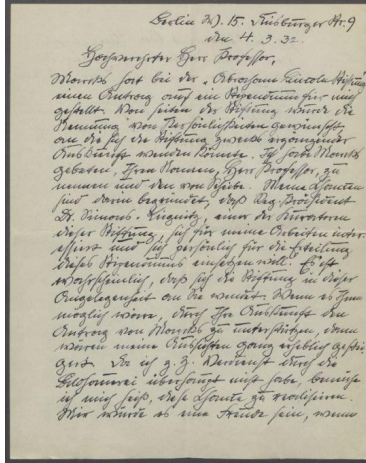 Berlin W. 15. Duisburger Str. 9
den 4. 3. 32.
Hochverehrter Herr Professor,
hat bei der "Abraham Lincoln Stiftung"
einen Antrag auf ein Stipendium für mich
gestellt. Von seiten der Stiftung wurde die
Nennung von Persönlichkeiten gewünscht
an die sich die Stiftung zwecks ergänzender
Auskünfte wenden könnte. Ich habe
gebeten, Ihren Namen, Herr Professor, zu
nennen und den von Scheibe. Meine Chancen
sind darin begründet, daß Reg. Präsident
Dr. Simons-Liegnitz, einer der Kuratoren
dieser Stiftung, sich für meine Arbeiten inter-
essiert und sich persönlich für die Erteilung
dieses Stipendiums einsetzen will. Es ist
wahrscheinlich, daß sich die Stiftung in dieser
Angelegenheit an Sie wendet. Wenn es Ihnen
möglich wäre, durch Ihre Auskunft den
Antrag von zu unterstützen, dann
wären meine Aussichten ganz erheblich gestie-
gen. Da ich z. Z. Verdienst durch die
Bildhauerei überhaupt nicht habe, bemühe
ich mich sehr, diese Chance zu realisieren.
Mir würde es eine Freude sein, wenn